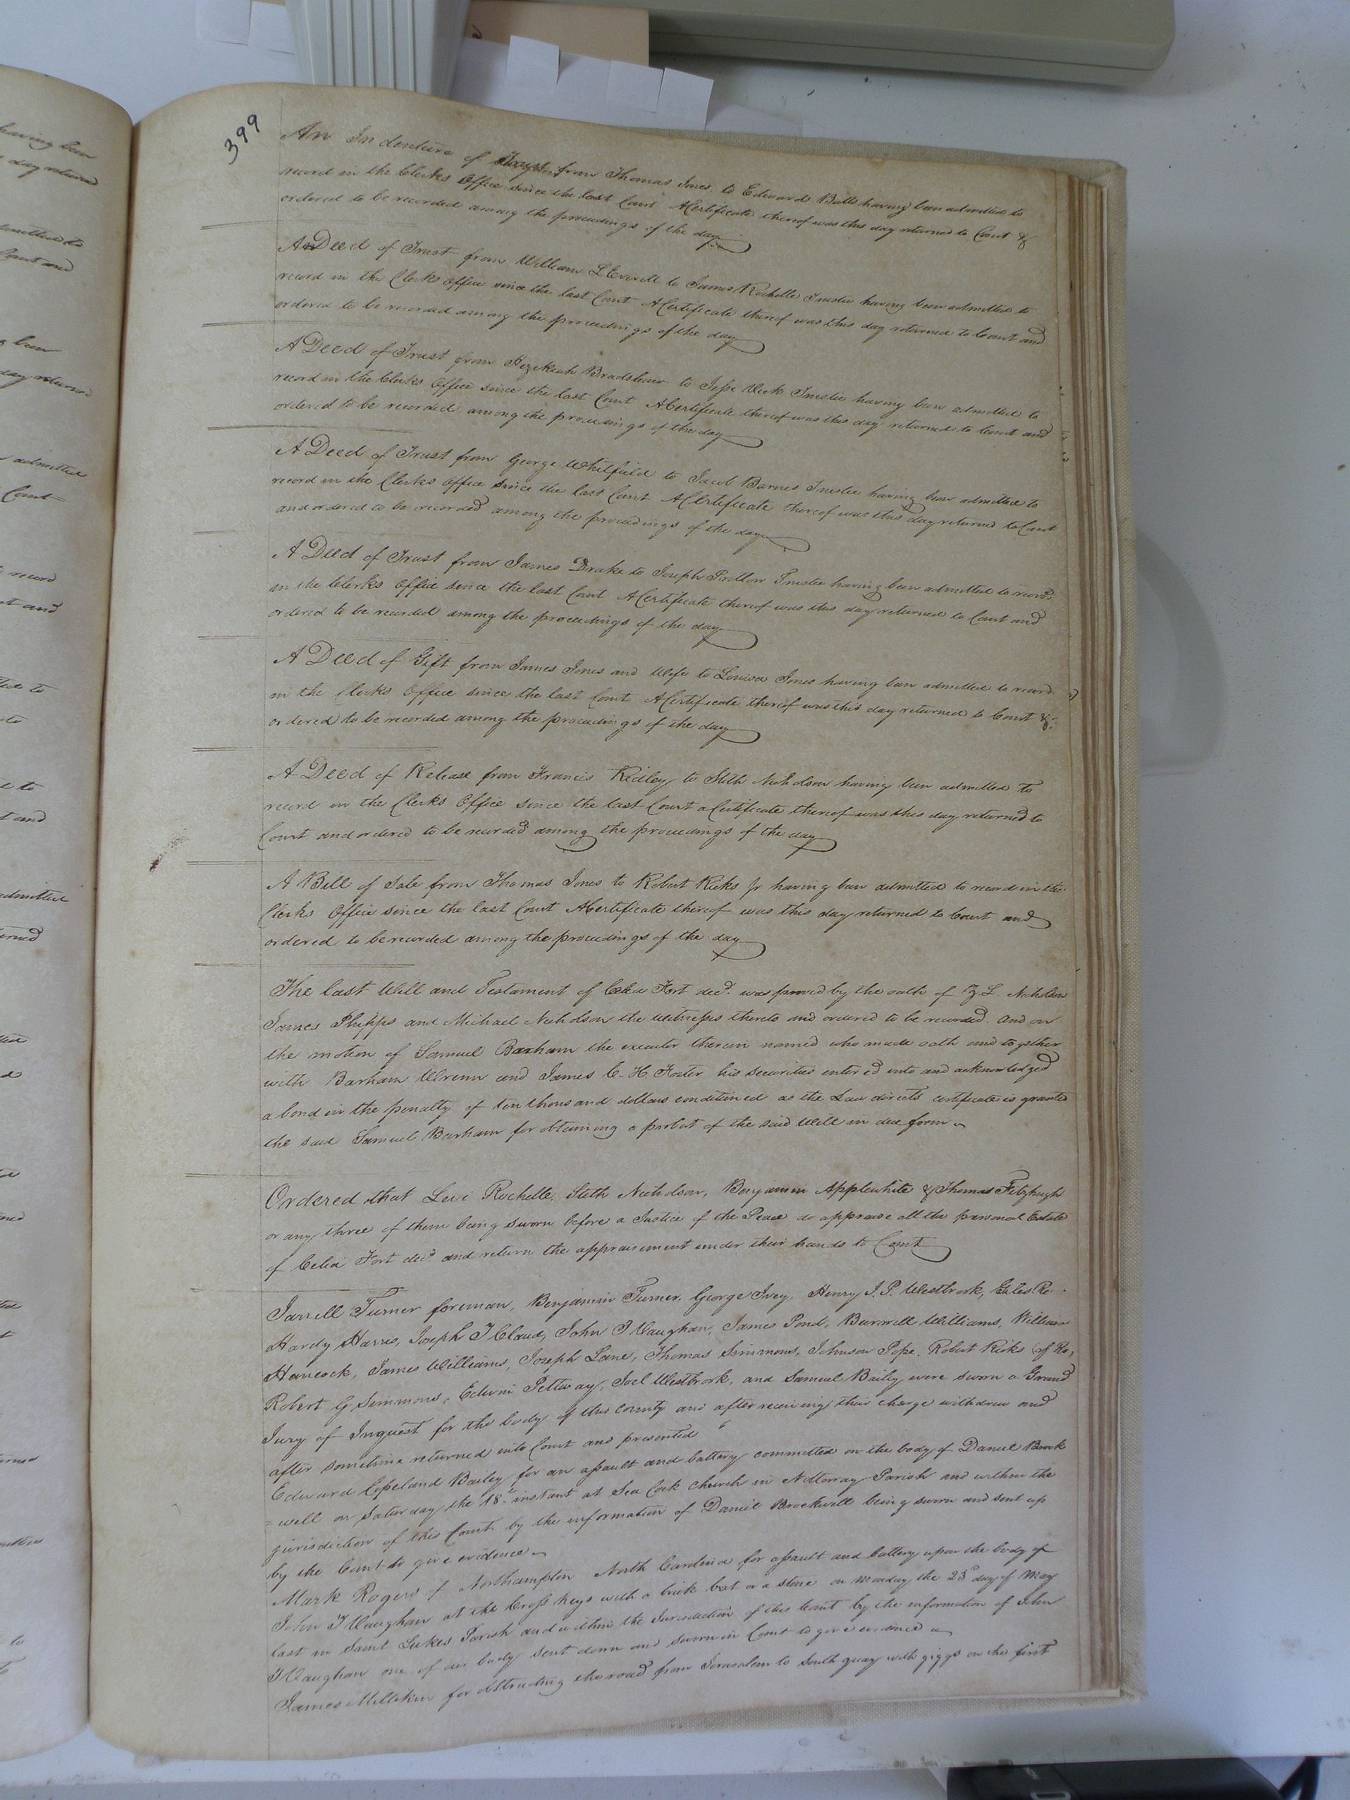 399
An Indenture of from Thomas Jones to Edward Butts having been admitted to
record in the Clerks Office since the last Court A Certificate thereof was this day returned to Court &
ordered to be recorded among the proceedings of the day
A Deed of Trust from William L Everitt to James Rochelle Trustee having been admitted to
record in the Clerks Office since the last Court A Certificate thereof was this day returned to Court and
ordered to be recorded among the proceedings of the day
A Deed of Trust from Hezekiah Bradshaw to Jesse Vick Trustee having been admitted to
record in the Clerks Office since the last Court A Certificate thereof was this day returned to Court and
ordered to be recorded among the proceedings of the day
A Deed of Trust from George Whitfield to Jacob Barnes Trustee having been admitted to
record in the Clerks Office since the last Court A Certificate thereof was this day returned to Court
and ordered to be recorded among the proceedings of the day
A Deed of Trust from James Drake to Joseph Pretlow Trustee having been admitted to record
in the Clerks Office since the last Court A Certificate thereof was this day returned to Court and
ordered to be recorded among the proceedings of the day
A Deed of Gift from James Jones and Wife to Louisa Jones having been admitted to record
in the Clerks Office since the last Court A Certificate thereof was this day returned to Court &
ordered to be recorded among the proceedings of the day
A Deed of Release from Francis Ridley to Stith Nicholson having been admitted to
record in the Clerks Office since the last Court a Certificate thereof was this day returned to
Court and ordered to be recorded among the proceedings of the day
A Bill of Sale from Thomas Jones to Robert Ricks Jr having been admitted to record in the
Clerks Office since the last Court A Certificate thereof was this day returned to Court and
ordered to be recorded among the proceedings of the day
The last Will and Testament of Celia Fort decd. was proved by the oath of Z L Nicholson
James Phipps and Michael Nicholson the witnesses thereto and ordered to be recorded. And on
the motion of Samuel Barham the executor therein named who made oath and together
with Barham Wrenn and James C. H. Foster his securities entered into and acknowledged
a bond in the penalty of ten thousand dollars conditioned as the Law directs certificate is granted
the said Samuel Barham for obtaining a probat of the said Will in due form
Ordered that Levi Rochelle, Stith Nicholson, Benjamin Applewhite & Thomas Fitzhugh
or any three of them being sworn before a Justice of the Peace do appraise all the personal Estate
of Celia Fort decd and return the appraisement under their hands to Court
Jarrell Turner foreman, Benjamin Turner, George Ivey, Henry J. P. Westbrook, Giles
Hardy Harris, Joseph T Claud, John T Vaughan, James Pond, Burwell Williams, William
Hancock, James Williams, Joseph Lane, Thomas Simmons, Johnson Pope, Robert Ricks (of
Robert G Simmons, Edwin Pettway, Joel Westbrook, and Samuel Baily were sworn a Grand
Jury of Inquest for the body of this County and after receiving their charge withdrew and
after sometime returned into Court and presented
Edward Copeland Bailey for an assault and battery committed on the body of Daniel Brock
=well on Saturday the 18 instant at Sea Cock Church in Nottoway Parish and within the
jurisdiction of this Court by the information of Daniel Brockwell being sworn and sent up
by the Court to give evidence
Mark Rogers of Northampton North Carolina for assault and battery upon the body of
John T Vaughan at the Cross Keys with a brick bat or a stone on monday the 23d day of May
last in Saint Lukes Parish and within the Jurisdiction of this Court by the information of John
T Vaughan one of our body sent down and sworn in Court to give evidence
James Millikin for obstructing the road from Jerusalem to South quay with giggs on the first